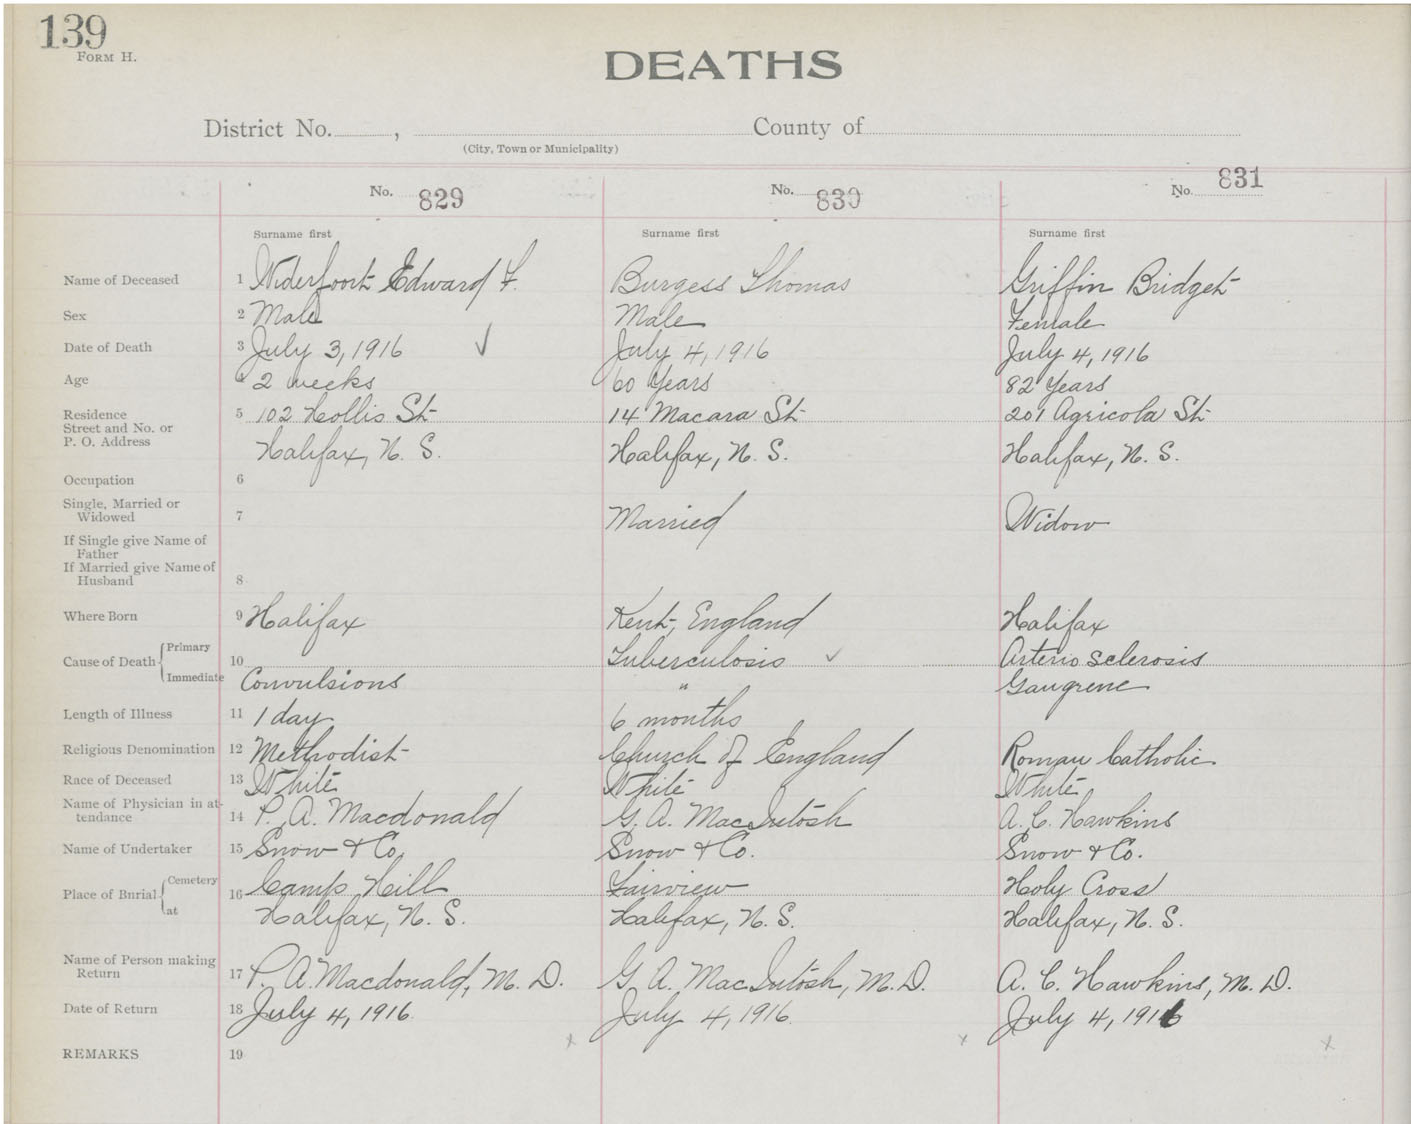 139
FORM H.
DEATHS
District No. , County of
(City, Town or Municipality)
No. 829 No. 830 No. 831
Surname first Surname first Surname first
Name of Deceased 1 Widerfoort Edward F. Burgess Thomas Griffin Bridget
Sex 2 Male Male Female
Date of Death 3 July 3, 1916 ✓ July 4, 1916 July 4, 1916
Age 4 2 weeks 60 Years 82 Years
Residence 5 102 Hollis St 14 Macara St 201 Agricola St
Street and No. or
P. O. Address Halifax, N. S. Halifax, N. S. Halifax, N. S.
Occupation 6
Single, Married or
Widowed 7 Married Widow
If Single give Name of
Father
If Married give Name of
Husband 8
Where Born 9 Halifax Kent, England Halifax
Cause of Death { Primary 10 Tuberculosis ✓ Arterio sclerosis
Immediate Convulsions " Gangrene
Length of Illness 11 1 day 6 months
Religious Denomination 12 Methodist Church of England Roman Catholic
Race of Deceased 13 White White White
Name of Physician in at-
tendance 14 P. A. Macdonald G. A. MacIntosh A. C. Hawkins
Name of Undertaker 15 Snow & Co. Snow & Co. Snow & Co.
Place of Burial { Cemetery 16 Camp Hill Fairview Holy Cross
at Halifax, N. S. Halifax, N. S. Halifax, N. S.
Name of Person making
Return 17 P. A. Macdonald, M. D. G. A. MacIntosh, M. D. A. C. Hawkins, M. D.
Date of Return 18 July 4, 1916. July 4, 1916. July 4, 1916
x x x
REMARKS 19